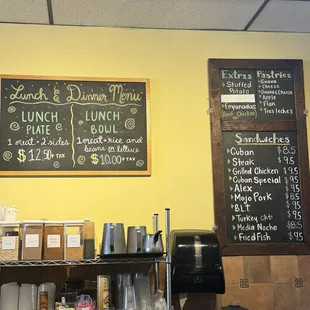 Lunch & Dinner Menu
LUNCH
PLATE
1 meat - 2 sides
$12.50 + TAX
LUNCH
BOWL
1 meat + rice and
beans or lettuce
$10.00 + TAX
Extras
Stuffed
Potato
Empanadas
Beef Chicken
Pastries
Guava &
Cheese
Guava Cheese
Apple
Flan
Tres leches
Sandwiches
Cuban $8.5
Steak $9.5
Grilled Chicken $9.5
Cuban Special $9.5
Alex $9.5
Mojo Pork $9.5
BLT $9.5
Turkey Cht $9.5
Media Noche $8.5
Fried Fish $9.5